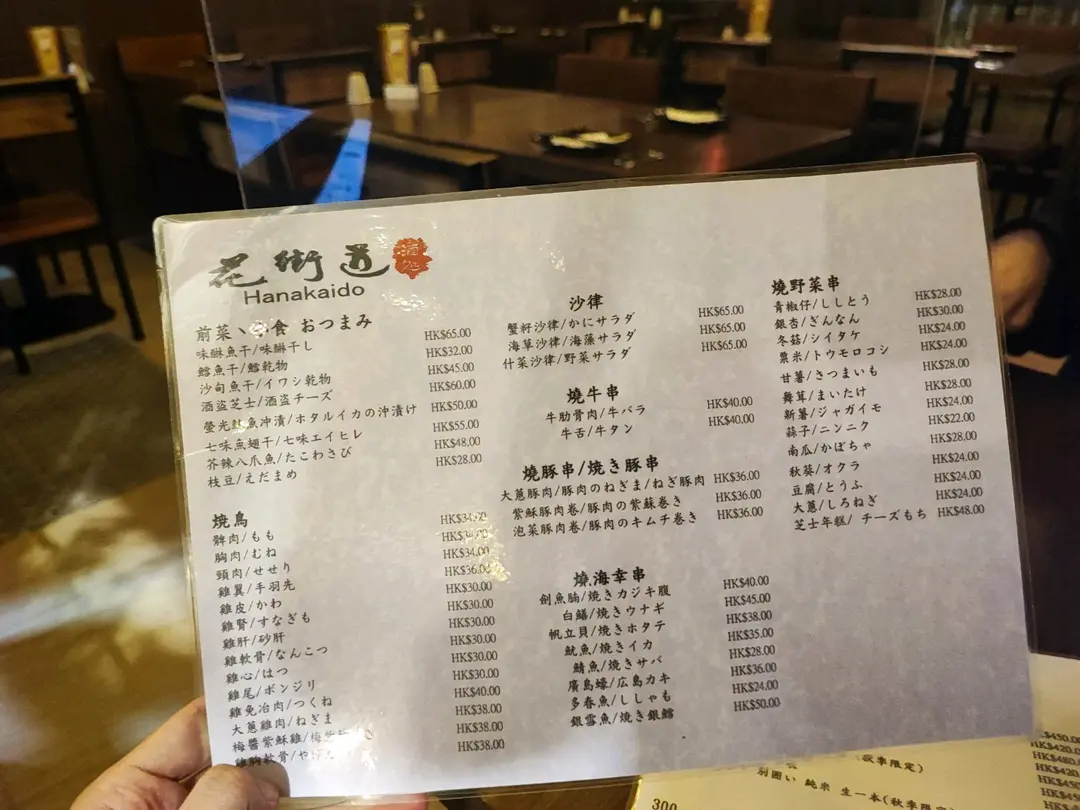 花街道 酒処
Hanakaido
前菜、小食 おつまみ
味醂魚干/味醂干し HK$65.00
鱈魚干/鱈乾物 HK$32.00
沙甸魚干/イワシ乾物 HK$45.00
酒盗芝士/酒盗チーズ HK$60.00
螢光魷魚沖漬/ホタルイカの沖漬け HK$50.00
七味魚翅干/七味エイヒレ HK$55.00
芥辣八爪魚/たこわさび HK$48.00
枝豆/えだまめ HK$28.00
燒鳥
髀肉/もも HK$34.00
胸肉/むね HK$34.00
頸肉/せせり HK$34.00
雞翼/手羽先 HK$36.00
雞皮/かわ HK$30.00
雞腎/すなぎも HK$30.00
雞肝/砂肝 HK$30.00
雞軟骨/なんこつ HK$30.00
雞心/はつ HK$30.00
雞尾/ボンジリ HK$30.00
雞免冶肉/つくね HK$40.00
大蔥雞肉/ねぎま HK$38.00
梅醬紫穌雞/梅 HK$38.00
雞胸軟骨/やげん HK$38.00
沙律
蟹籽沙律/かにサラダ HK$65.00
海草沙律/海藻サラダ HK$65.00
什菜沙律/野菜サラダ HK$65.00
燒牛串
牛肋骨肉/牛バラ HK$40.00
牛舌/牛タン HK$40.00
燒豚串/焼き豚串
大蔥豚肉/豚肉のねぎま/ねぎ豚肉 HK$36.00
紫穌豚肉卷/豚肉の紫蘇巻き HK$36.00
泡菜豚肉卷/豚肉のキムチ巻き HK$36.00
燒海幸串
劍魚腩/焼きカジキ腹 HK$40.00
白鱔/焼きウナギ HK$45.00
帆立貝/焼きホタテ HK$38.00
魷魚/焼きイカ HK$35.00
鯖魚/焼きサバ HK$28.00
廣島蠔/広島カキ HK$36.00
多春魚/ししゃも HK$24.00
銀雪魚/焼き銀鱈 HK$50.00
燒野菜串
青椒仔/ししとう HK$28.00
銀杏/ぎんなん HK$30.00
冬菇/シイタケ HK$24.00
粟米/トウモロコシ HK$24.00
甘薯/さつまいも HK$28.00
舞茸/まいたけ HK$28.00
新薯/ジャガイモ HK$24.00
蒜子/ニンニク HK$22.00
南瓜/かぼちゃ HK$28.00
秋葵/オクラ HK$24.00
豆腐/とうふ HK$24.00
大蔥/しろねぎ HK$24.00
芝士年糕/ チーズもち HK$48.00
(秋季限定)
別囲い 純米 生一本(秋季限定)
300
HK$450.00
HK$420.0
HK$480.0
HK$420
HK$450